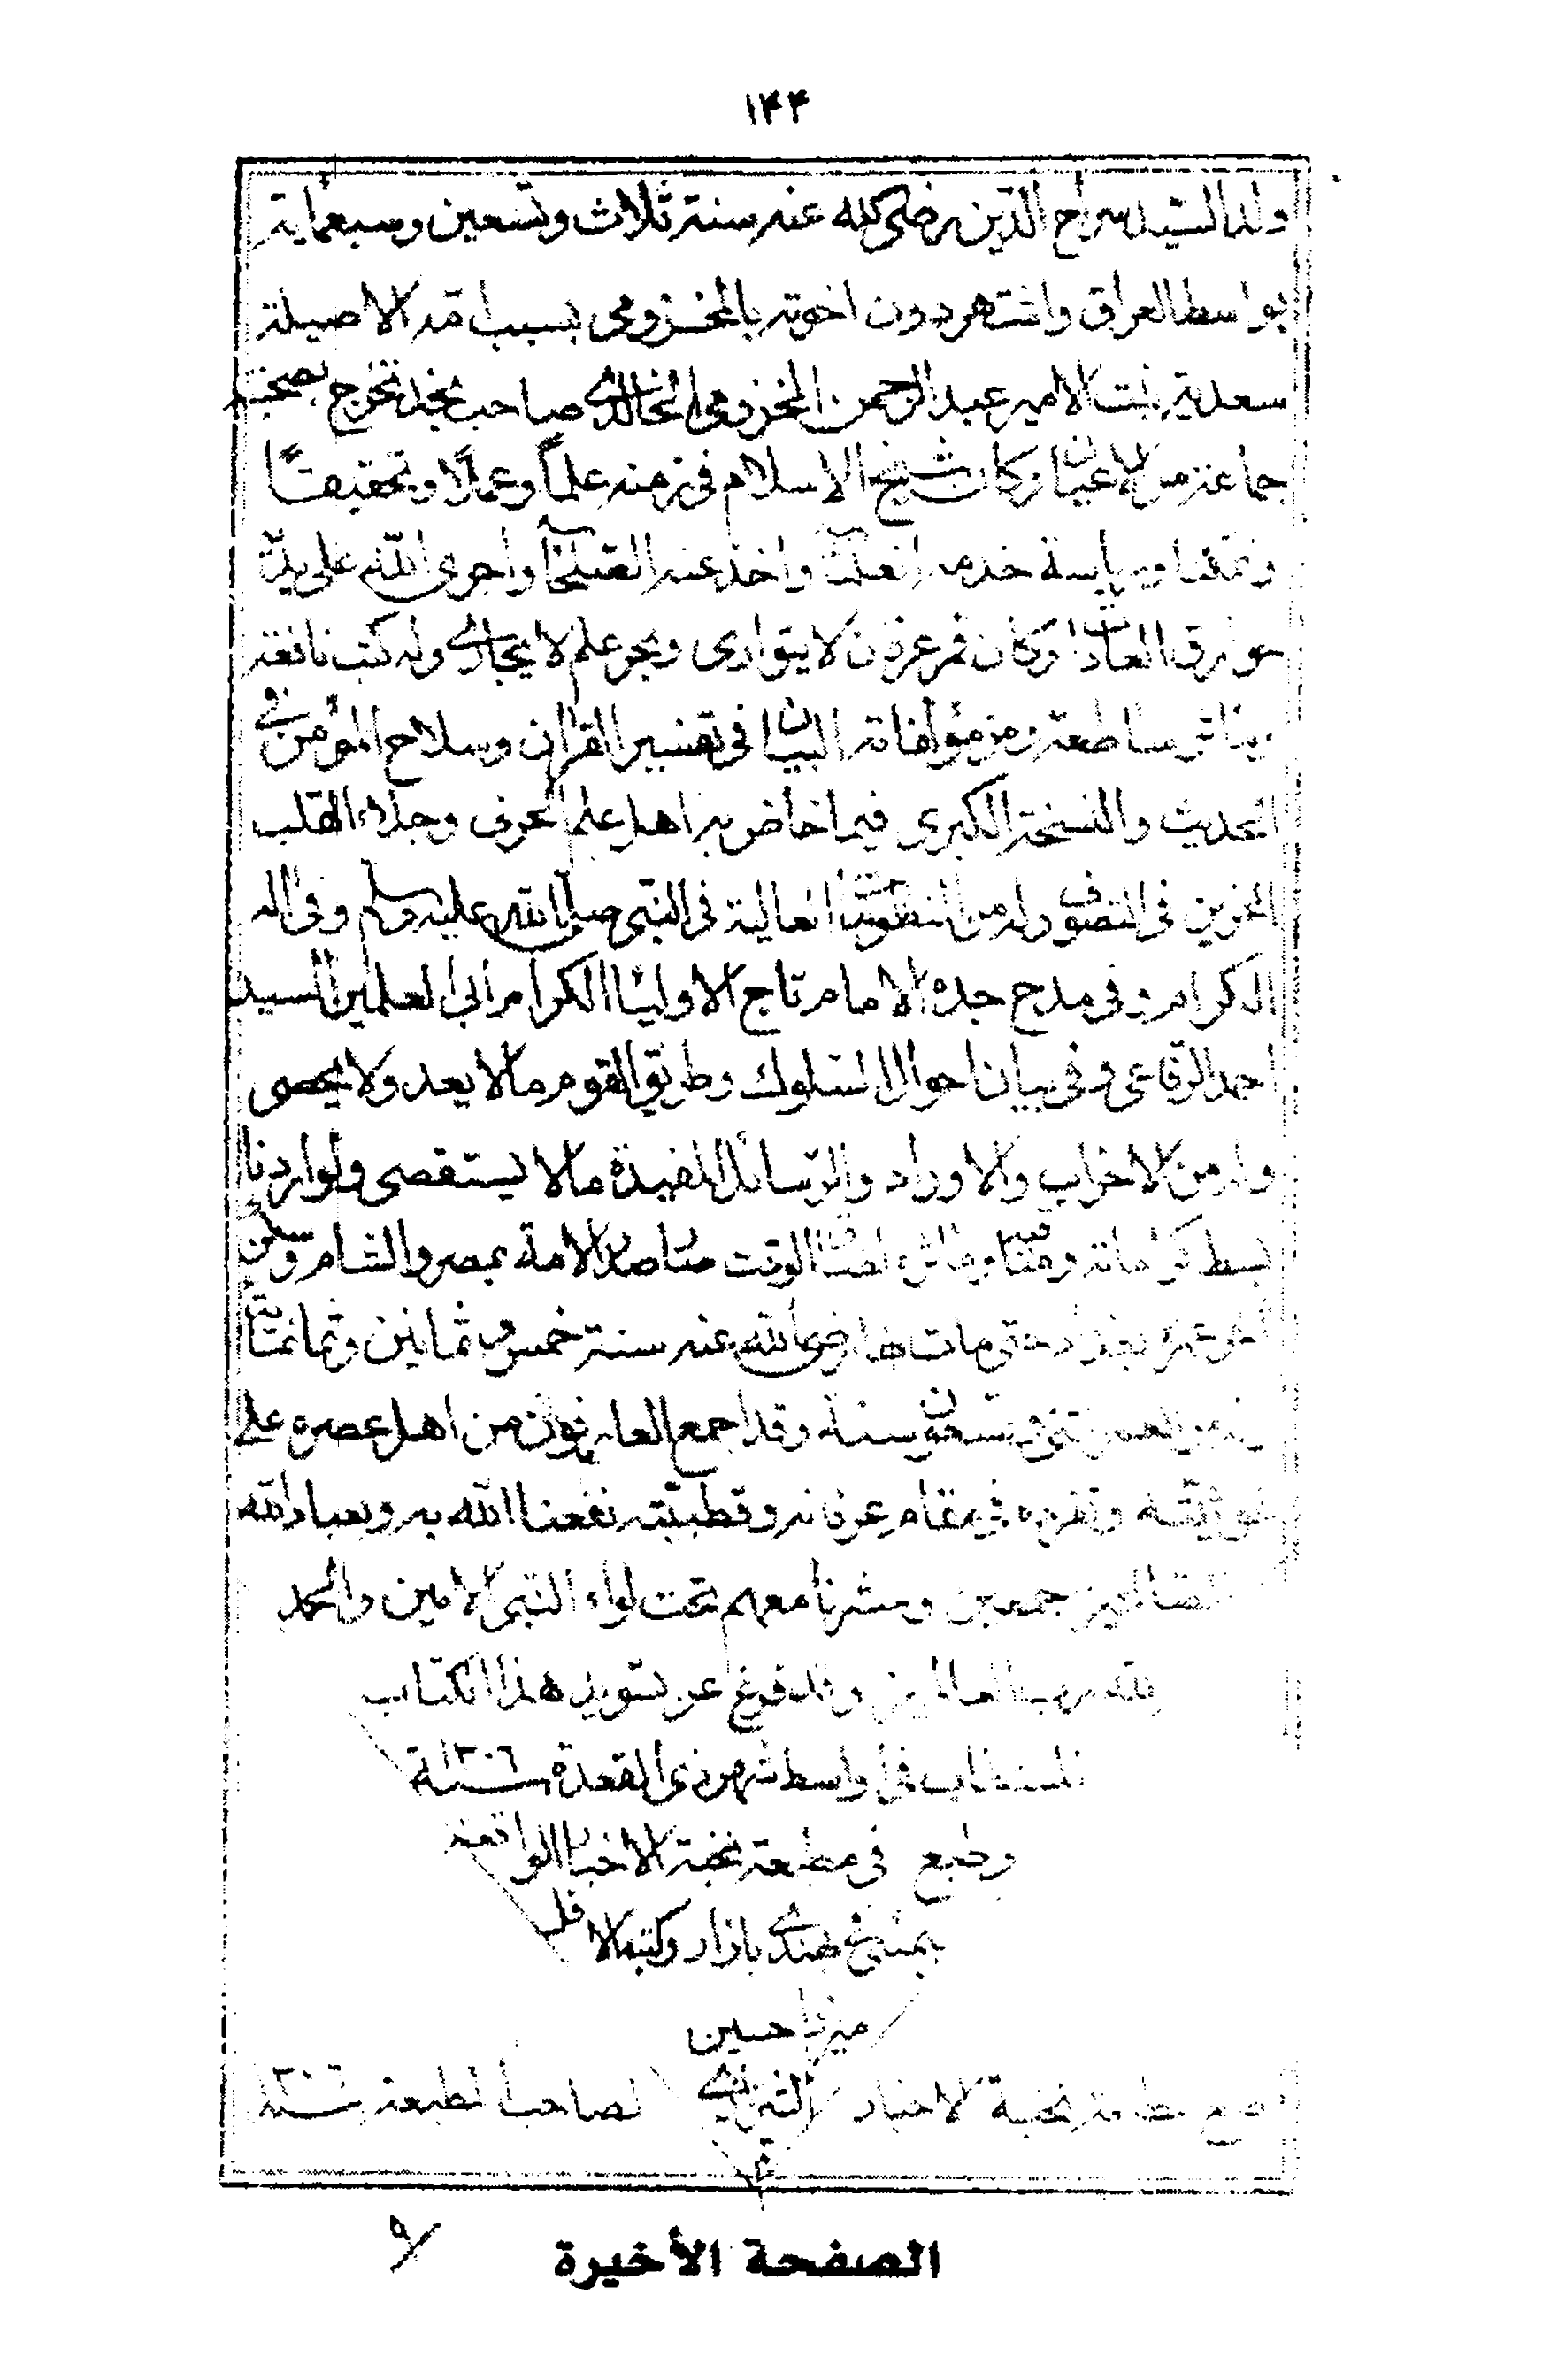 ١٤٤
ولد السيد سراج الدين رضي الله عنه سنة ثلاث وتسعين وسبعماية
بواسط العراق واشتهر دون اخوته بالمخزومي بسبب امه الاصيلة
سعدية بنت الامير عبد الرحمن المخزومي الخالدي صاحب نجد تخرج بصحبته
جماعة من الاعيان وكان شيخ الاسلام في زمنه علماً وعملاً وتحقيقاً
وتمكنا ورياسة خدمه العلماء واخذ عنه الصلحاء واجرى الله على يديه
خوارق العادات وكان قمر عرفان لا يتوارى وبحر علم لا يجارى وله كتب نافعة
ساطعة ومن مؤلفاته البيان في تفسير القران وسلاح المؤمن في
الحديث والنسخة الكبرى فيما خاض به اهل علم الحرف وجلاء القلب
الحزين في التصوف وله من المنظومات العالية في النبي صلى الله عليه وسلم وفي اله
الكرام وفي مدح جده الامام تاج الاولياء الكرام ابي العلمين السيد
احمد الرفاعي وفي بيان احوال السلوك وطريق القوم ما لا يعد ولا يحصى
وله من الاحزاب والاوراد والرسائل المفيدة ما لا يستقصى ولو اردنا
بسط كراماته ومناقبه لضاق الوقت صار الامة بمصر والشام وسكن
بغداد حتى مات بها رضي الله عنه سنة خمس وثمانين وثمانمائة
وتسعون سنة وقد اجمع العارفون من اهل عصره على
غوثيته وتفرده في مقام عرفانه وقطبيته نفعنا الله به وبعباد الله
الصالحين اجمعين وحشرنا معهم تحت لواء النبي الامين والحمد
لله رب العالمين وقد فرغ عن تسويد هذا الكتاب
المستطاب في اواسط شهر ذي القعدة سنة ١٣٠٦
وطبع في مطبعة نخبة الاخبار الواقعة
بمبئي بهندي بازار وكتبه الاقل
ميرزا حسين
الشيرازي
طبع بمطبعة نخبة الاخبار لصاحب المطبعة سنة ١٣٠٦
الصفحة الأخيرة